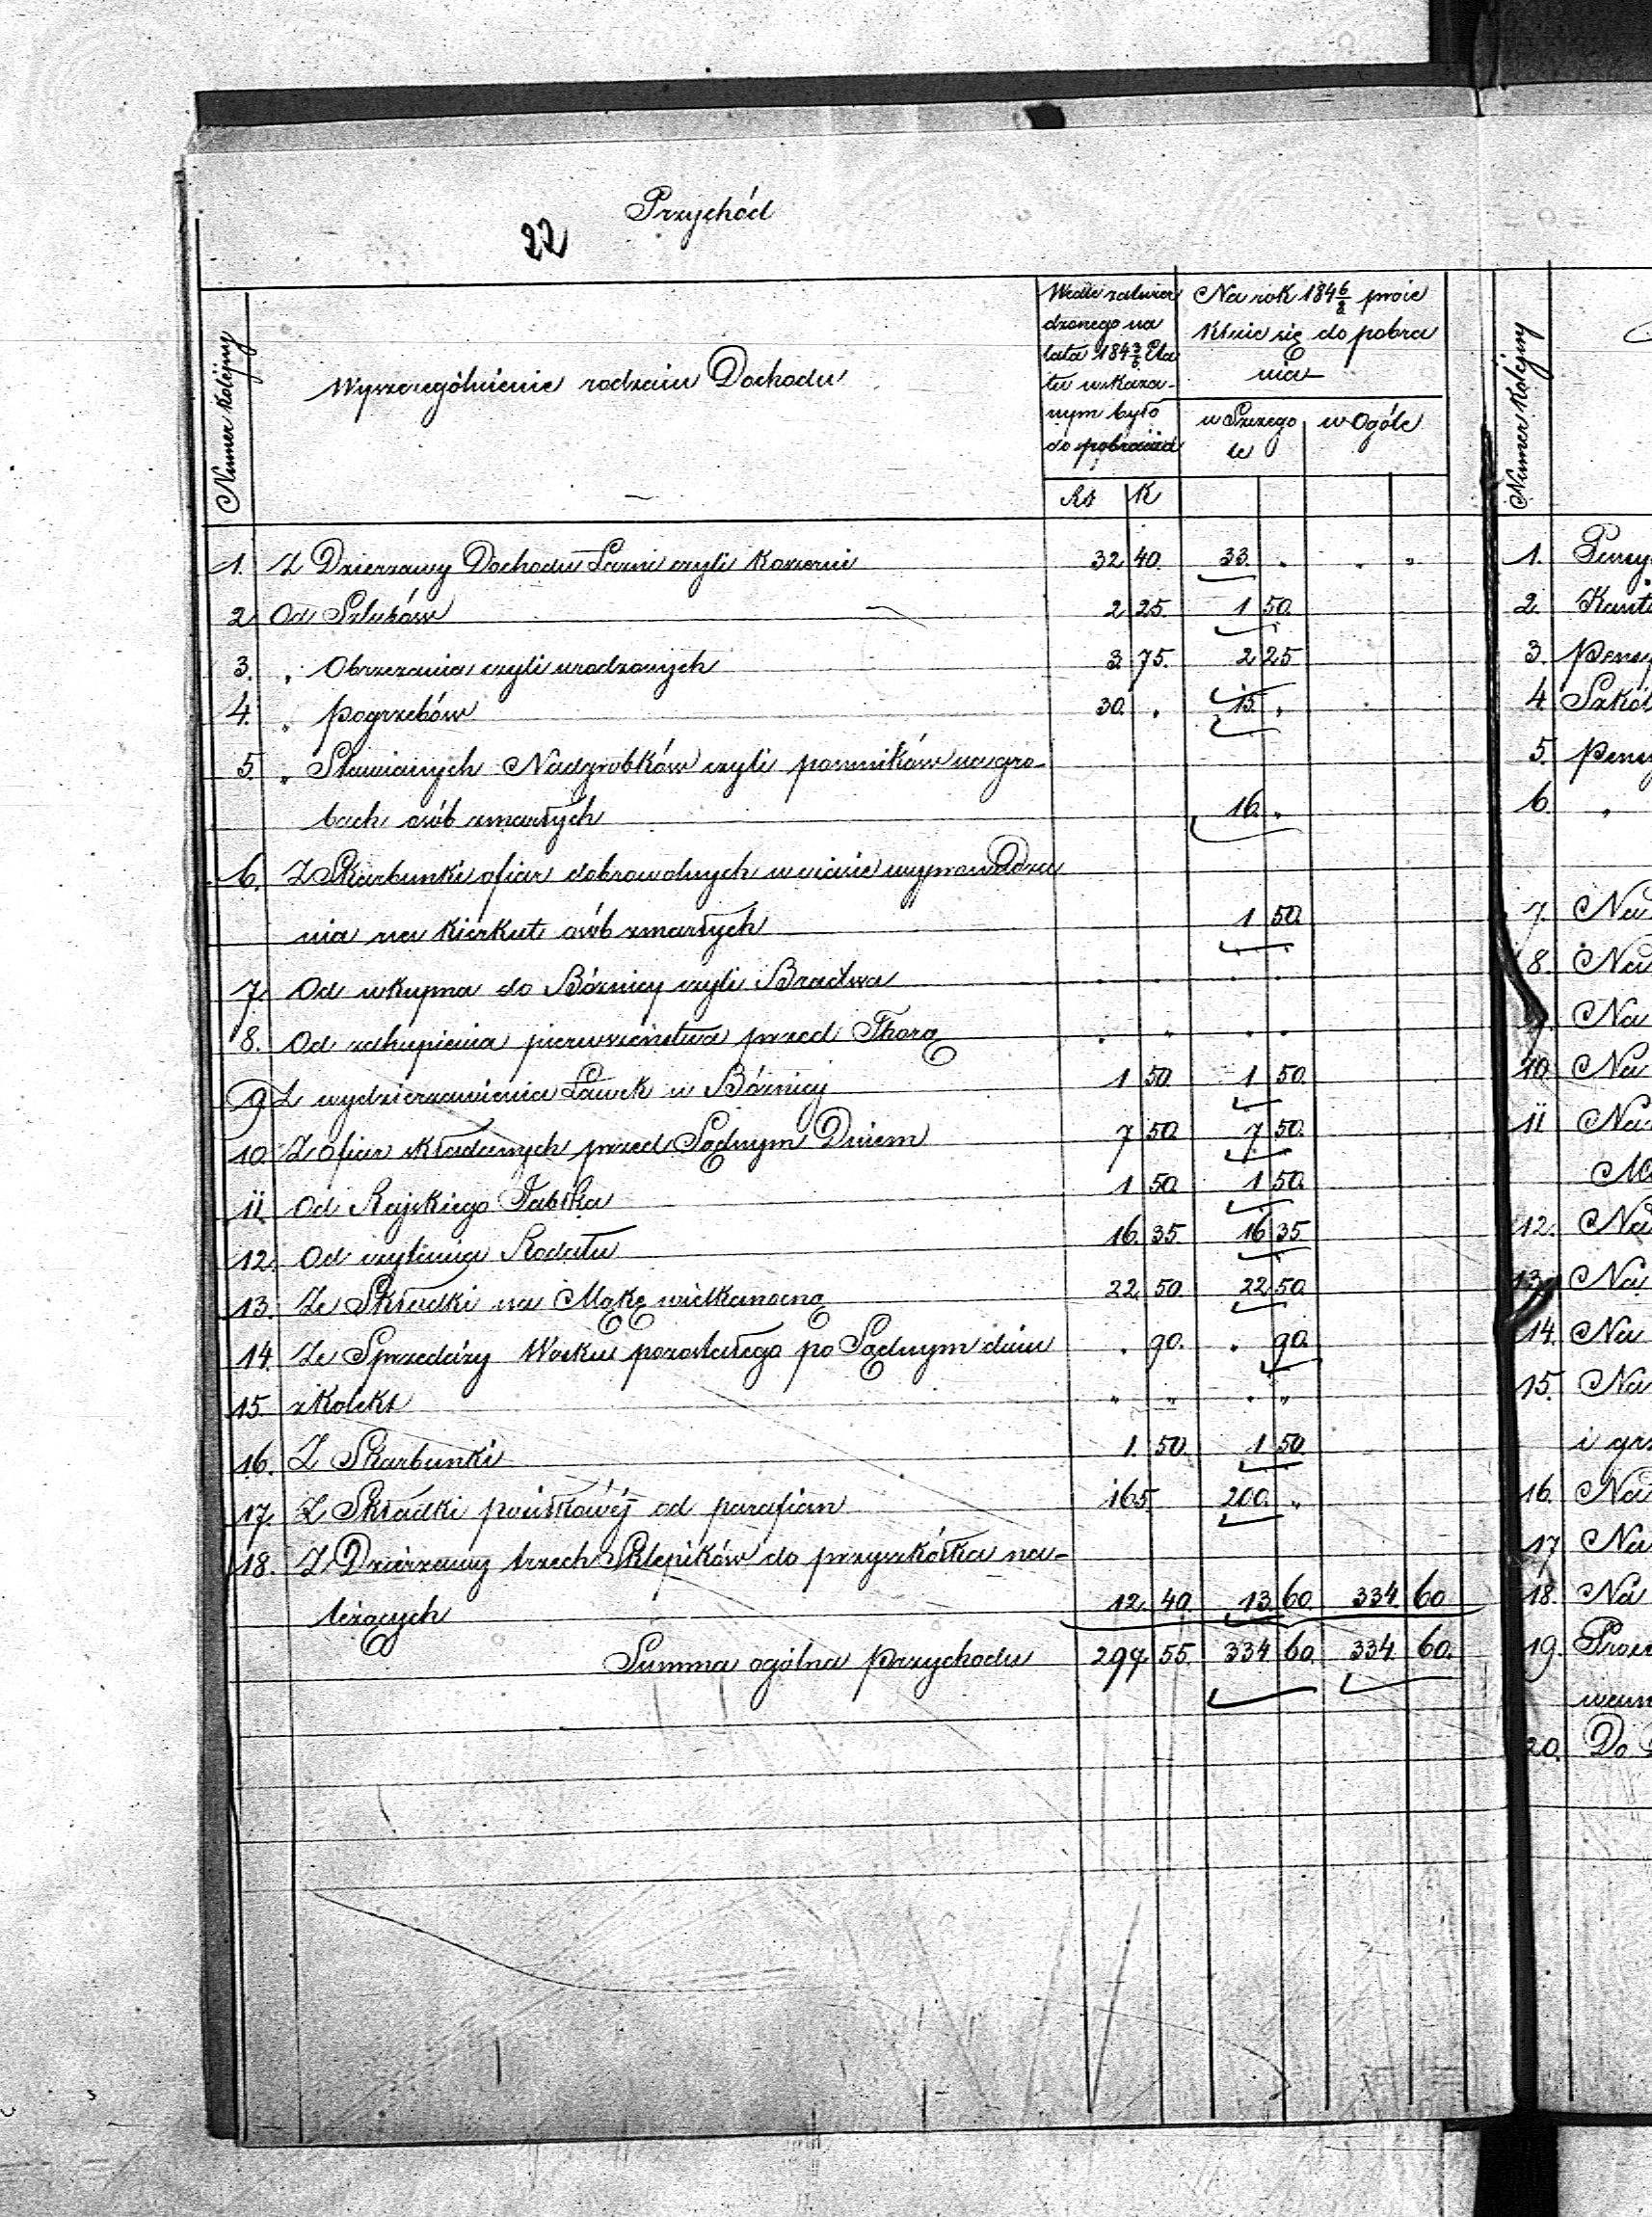 Przychód
22
Numer Kolejny
Wyszczególnienie rodzaiu Dochodu
Wedle zatwier
dzonego na
lata 184 3/5 Eta
tu wskaza-
nym było
do pobrania
Na rok 184 6/8 proie
ktuie się do pobra
nia
w Szczego
le
w Ogóle
Rs K
1. Z Dzierzawy Dochodu Łazni czyli Koszerni 32 40. 33. " " "
2. Od Szlubów 2 25. 1 50.
3. " Obrzezania czyli urodzonych 3 75. 2 25
4. " pogrzebów 30. " 15. "
5. " Stawianych Nadgrobków czyli pomników na gro-
bach osób zmarłych 16. "
6. Z Skarbunki ofiar dobrowolnych w czasie wyprowadza
nia na Kierkut osób zmarłych 1 50.
7. Od wkupna do Bóznicy czyli Bractwa " " " "
8. Od zakupienia pierwszeństwa przed Thorą " " " "
9. Z wydzierzawienia Ławek w Bóznicy 1 50. 1 50.
10. Z ofiar składanych przed Sądnym Dniem 7 50. 7 50.
11. Od Rajskiego Jabłka 1 50. 1 50.
12. Od czytania Rodału 16. 35. 16 35
13. Ze Składki na Mąkę wielkanocną 22 50. 22 50.
14. Ze Sprzedáży Wosku pozostałego po Sądnym dniu " 90. " 90.
15. z Kolekt " " " "
16. Z Skarbunki 1. 50 1 50
17. Z Składki od parafian 165 200. "
18. Z Dzierzawy trzech Sklepików do przyszkółka na-
leżących 12. 40. 13. 60. 334. 60
Summa ogólna Przychodu 297. 55. 334 60. 334. 60.
Numer Kolejny
1.
2.
3.
4
5.
6. "
7. Na
8. Na
Na
10. Na
11 Na
12. Na
13. Na
14. Na
15. Na
i
16. Na
17 Na
18. Na
19.
20. Do